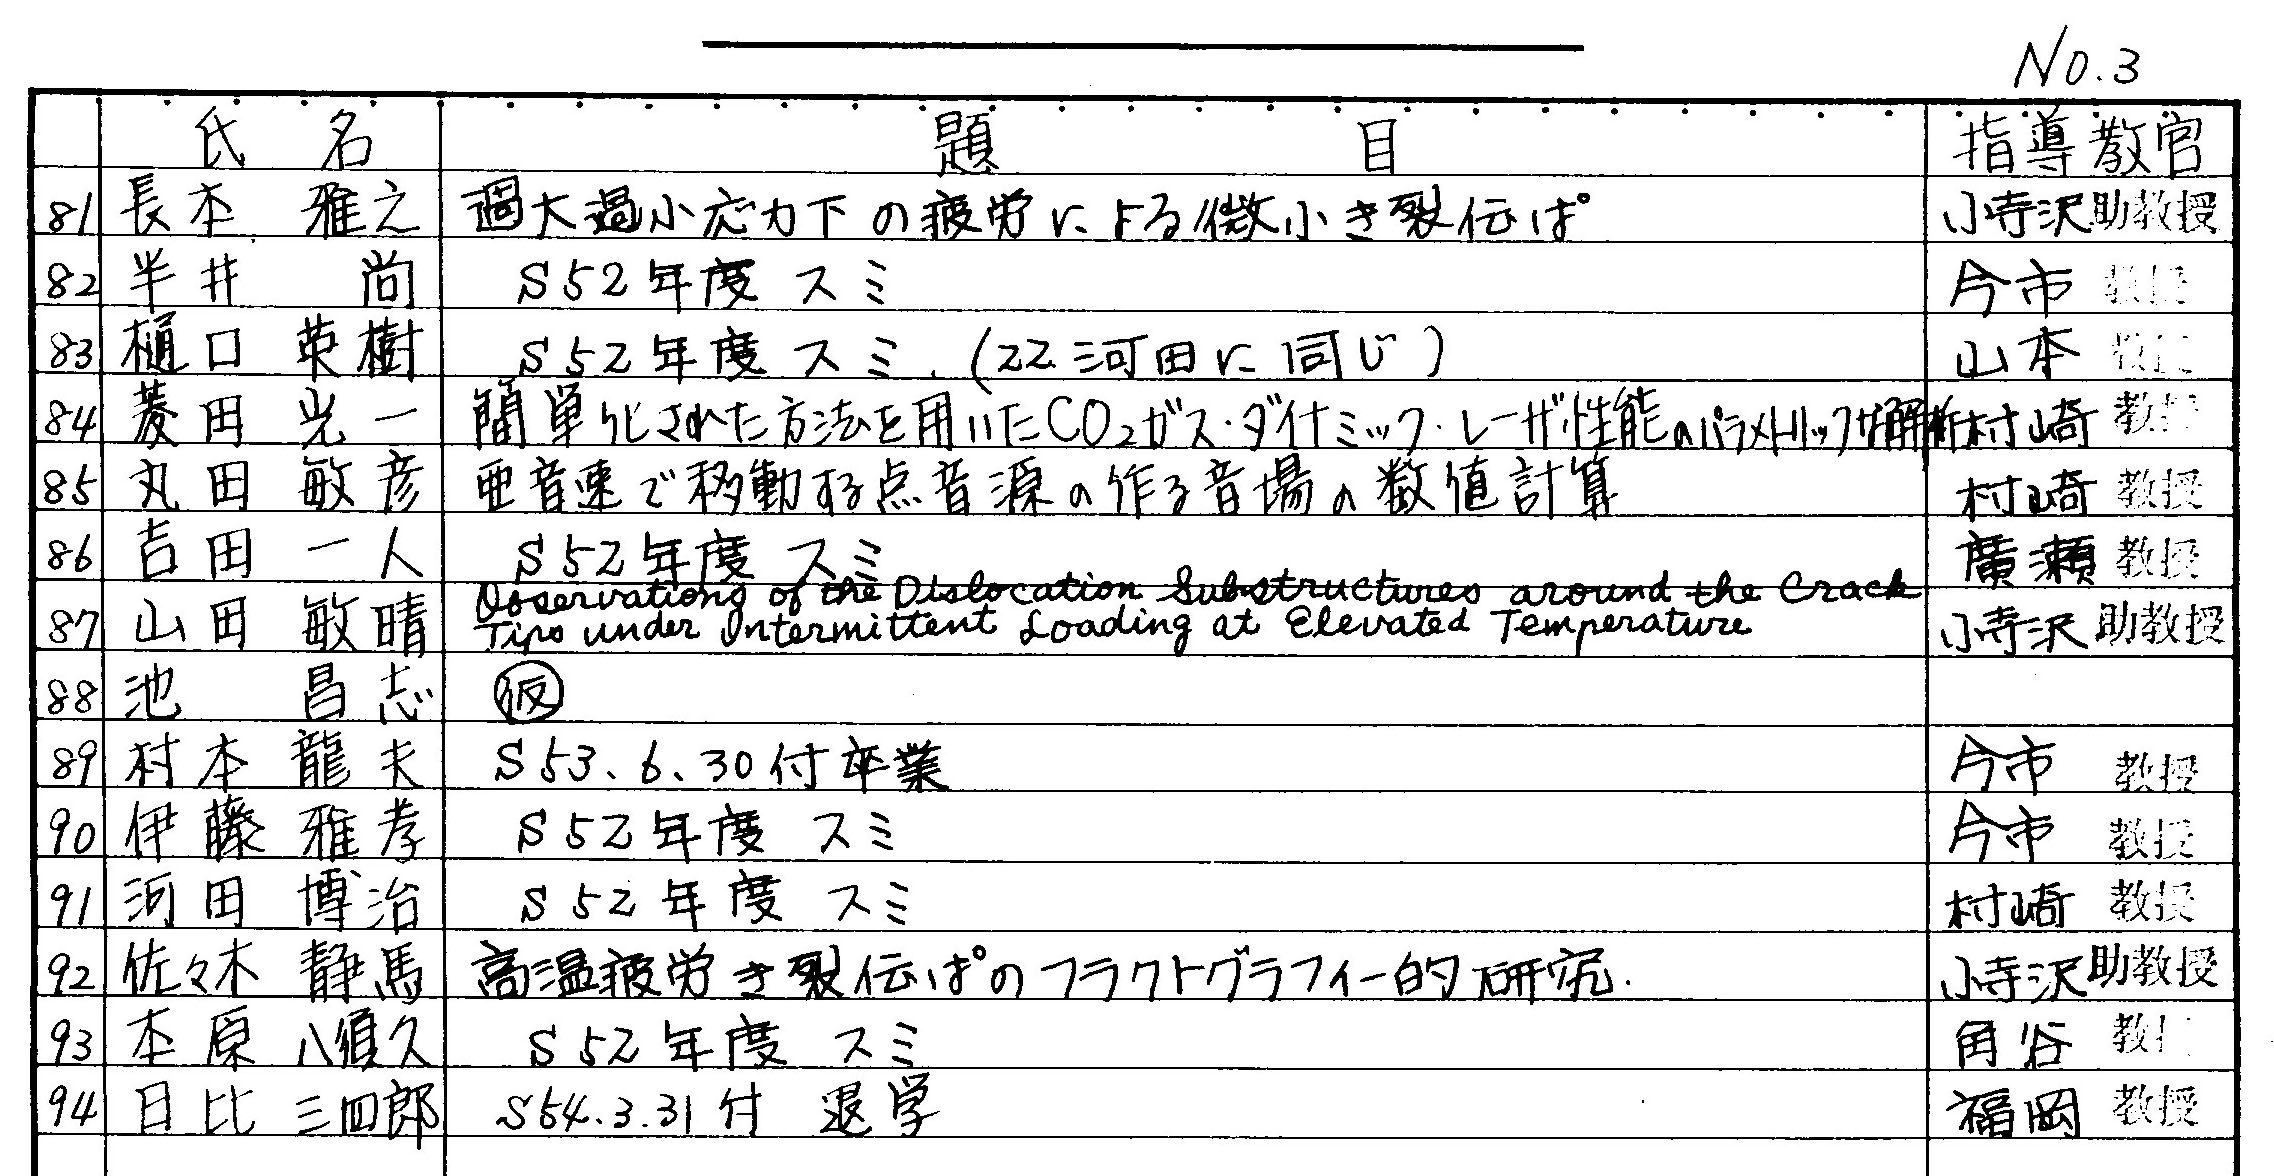 No.3
氏 名 題 目 指導教官
81 長本 雅之 過大過小応力下の疲労による微小き裂伝ぱ 小寺沢助教授
82 半井 尚 S52年度 スミ 今市 教授
83 樋口 英樹 S52年度 スミ.(22 河田に同じ) 山本 教授
84 菱田 光一 簡単化された方法を用いたCO₂ガス・ダイナミック・レーザ性能のパラメトリック解析 村崎 教授
85 丸田 敏彦 亜音速で移動する点音源の作る音場の数値計算 村崎 教授
86 吉田 一人 S52年度 スミ 廣瀬 教授
87 山田 敏晴 Observations of the Dislocation Substructures around the Crack
Tips under Intermittent Loading at Elevated Temperature 小寺沢 助教授
88 池 昌志 仮
89 村本 龍夫 S53.6.30付卒業 今市 教授
90 伊藤 雅孝 S52年度 スミ 今市 教授
91 河田 博治 S52年度 スミ 村崎 教授
92 佐々木 静馬 高温疲労き裂伝ぱのフラクトグラフィー的研究. 小寺沢助教授
93 本原 八須久 S52年度 スミ 角谷 教授
94 日比 三四郎 S54.3.31付 退学 福岡 教授